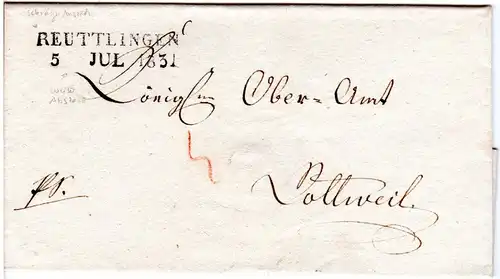 REUTTLINGEN
5 JUL 1831
Königl. Ober=Amt
ps.
Rottweil.